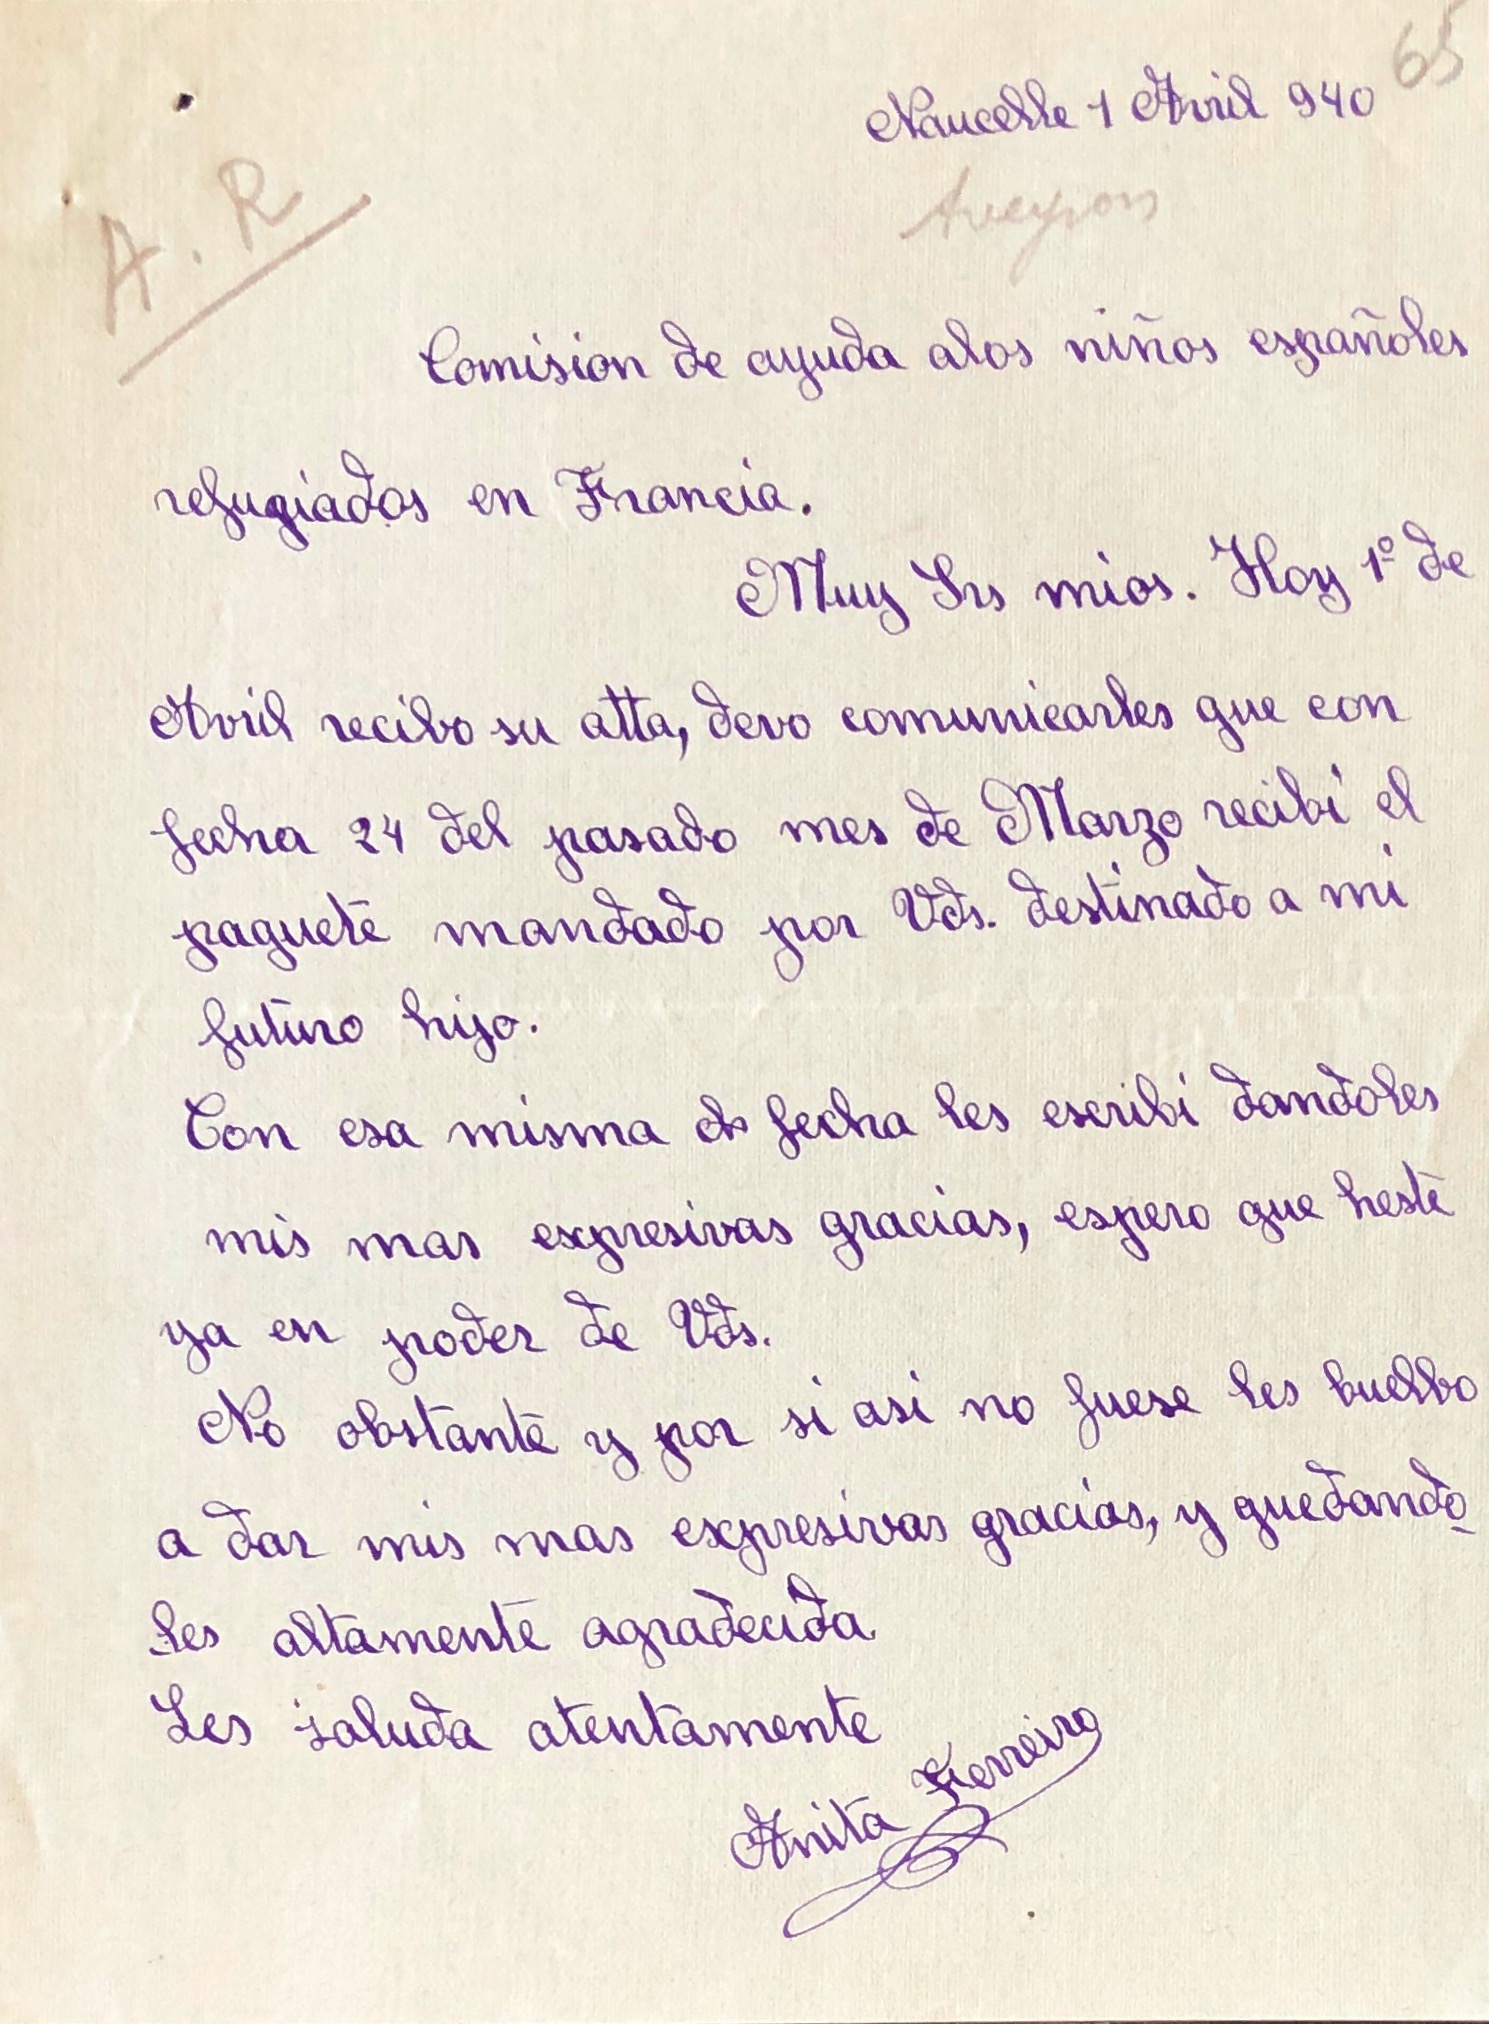 65
Naucelle 1 Avril 940
Aveyron
A. R
Comision de ayuda alos niños españoles
refugiados en Francia.
Muy Srs mios. Hoy 1º de
Avril recibo su atta, devo comunicarles que con
fecha 24 del pasado mes de Marzo recibi el
paquete mandado por Vds. destinado a mi
futuro hijo.
Con esa misma fecha les escribi dandoles
mis mas expresivas gracias, espero que heste
ya en poder de Vds.
No obstante y por si asi no fuese les buelbo
a dar mis mas expresivas gracias, y quedando
les altamente agradecida
Les saluda atentamente
Anita Ferreiro